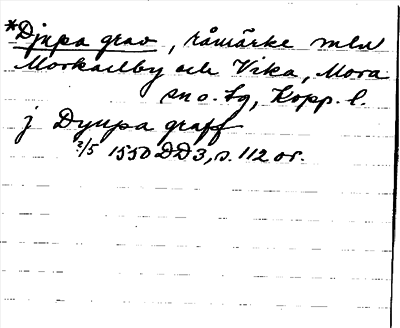 *Djupa grav, råmärke mln
Morkarlby och Vika, Mora
sn o. tg, Kopp. l.
j Dyupa graff
2/5 1550 DD3, s. 112 or.